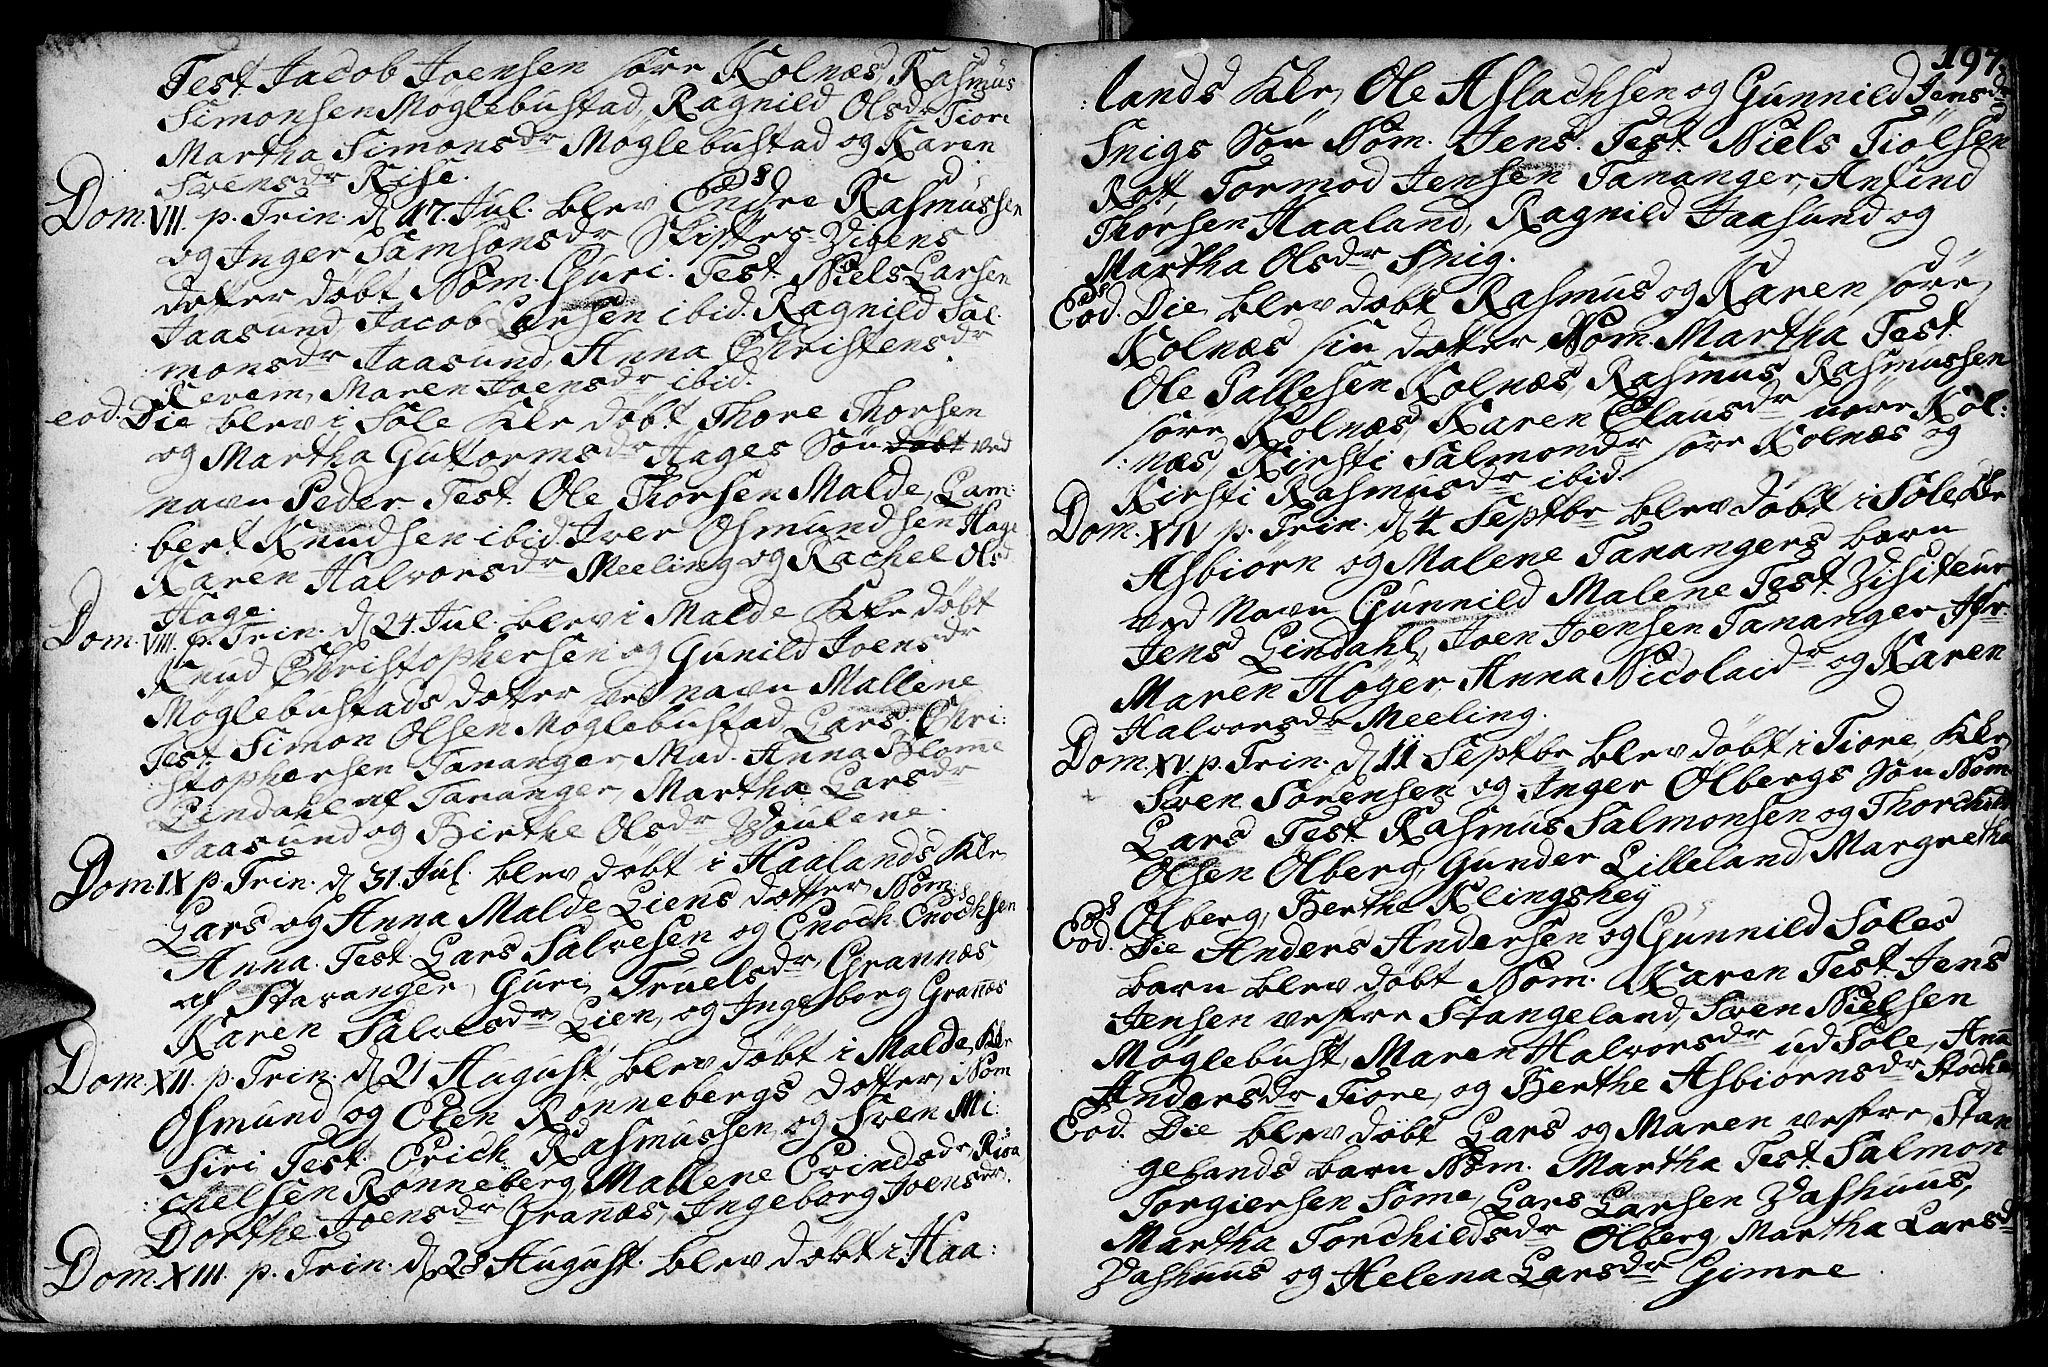 Test. Jacob Joensen søre Kolnæs, Rasmus
Simonsen Møglebustad, Ragnild Olsdr Tiore
Martha Simonsdr Møglebustad og Karen
Svensdr Risе.
Dom. VII. p. Trin. d 17. Jul. blev Endre Rasmussen
og Inger Samsonsdr
dotter døbt Nom. Guri. Test. Niels Larsen
Jaasund, Jacob Larsen ibid. Ragnild Sal-
monsdr Jaasund, Anna Christensdr
Revem, Maren Joensdr ibid.
eod. Die blev i Sole Kke døbt Thore Thorsen
og Martha Guttormsdr Hages Søn døbt ved
navn Peder. Test. Ole Thorsen Malde, Lam:
bert Knudsen ibid. Iver Osmundsen Hage
Karen Halvorsdr Meeling og Rachel Olsd
Hage.
Dom. VIII. p. Trin. d 24. Jul. blev i Malde Kke døbt
Knud Christophersen og Gunild Joensdr
Møglebustads dotter ved navn Mallene
Test. Simon Olsen Møglebustad, Lars Chri:
stophersen Tananger, Mad. Anna Blome
Lindahl af Tananger, Martha Larsdr
Jaasund og Birthe Olsdr Voulene.
Dom. IX p. Trin. d 31. Jul. blev døbt i Haalands Kke
Lars og Anna Malde Liens dotter, Nom:
Anna. Test. Lars Salvesen og Enoch Enochsen
af Stavanger, Guri Truelsdr, Grannæs
Karen Salvesdr Lien, og Ingeborg Granæs
Dom. XII. p. Trin. d 21 August. blev døbt i Malde Kke
Osmund og Elen Rønnebergs dotter, Nom
Siri Test. Erich Rasmussen, og Sven Mi:
chelsen Rønneberg, Mallene Erindsdr, Risa
Dorthe Joensdr Granæs, Ingeborg Joensdr.
Dom. XIII. p. Trin. d 28 August. blev døbt i Haa:
197.
:lands Kke, Ole Aslachsen og Gunnild Jensdr
Snigs Søn Nom. Jens. Test. Niels Tiølsen
Rot Tormod Jensen Tananger, Anfind
Thorsen Haaland, Ragnild Jaasund og
Martha Olsdr Snig.
Eod. Die blev døbt Rasmus og Karen søre
Kolnæs sin dotter, Nom. Martha Test.
Ole Pallesen Kolnæs, Rasmus Rasmussen
søre Kolnæs, Karen Clausdr nore Kol:
:næs, Kirsti Salmondr søre Kolnæs og
Kirsti Rasmusdr ibid.
Dom. XIV p. Trin. d 4 Septbr blev døbt i Sole Kke
Asbiørn og Malene Tanangers barn
ved Navn Gunnild Malene Test. Visiteur
Jens Lindahl, Joen Joensen Tananger, Jfr.
Maren Høyer, Anna Nicolaidr og Karen
Halvorsdr Meeling.
Dom. XV p. Trin. d 11 Septbr blev døbt i Tiore Kke
Sven Sørensen og Inger Olbergs Søn Nom.
Lars Test. Rasmus Salmonsen og Thorchild
Olsen Olberg, Gunder Lilleland, Margretha
Olberg, Berthe Klingshey
Eod. Die Anders Andersen og Gunnild Soles
barn blev døbt Nom. Karen Test. Jens
Jensen vestre Stangeland, Sven Nielsen
Møglebust, Maren Halvorsdr ud Sole, Anna
Andersdr Tiore, og Berthe Asbiørnsdr
Eod. Die blev døbt Lars og Maren vestre, Stan
gelands barn Nom. Martha Test. Salmon
Torgiersen Sømе, Lars Larsen Vashuus,
Martha Torchildsdr Olberg, Martha Larsdr
Vashuus og Helena Larsdr Gimre.